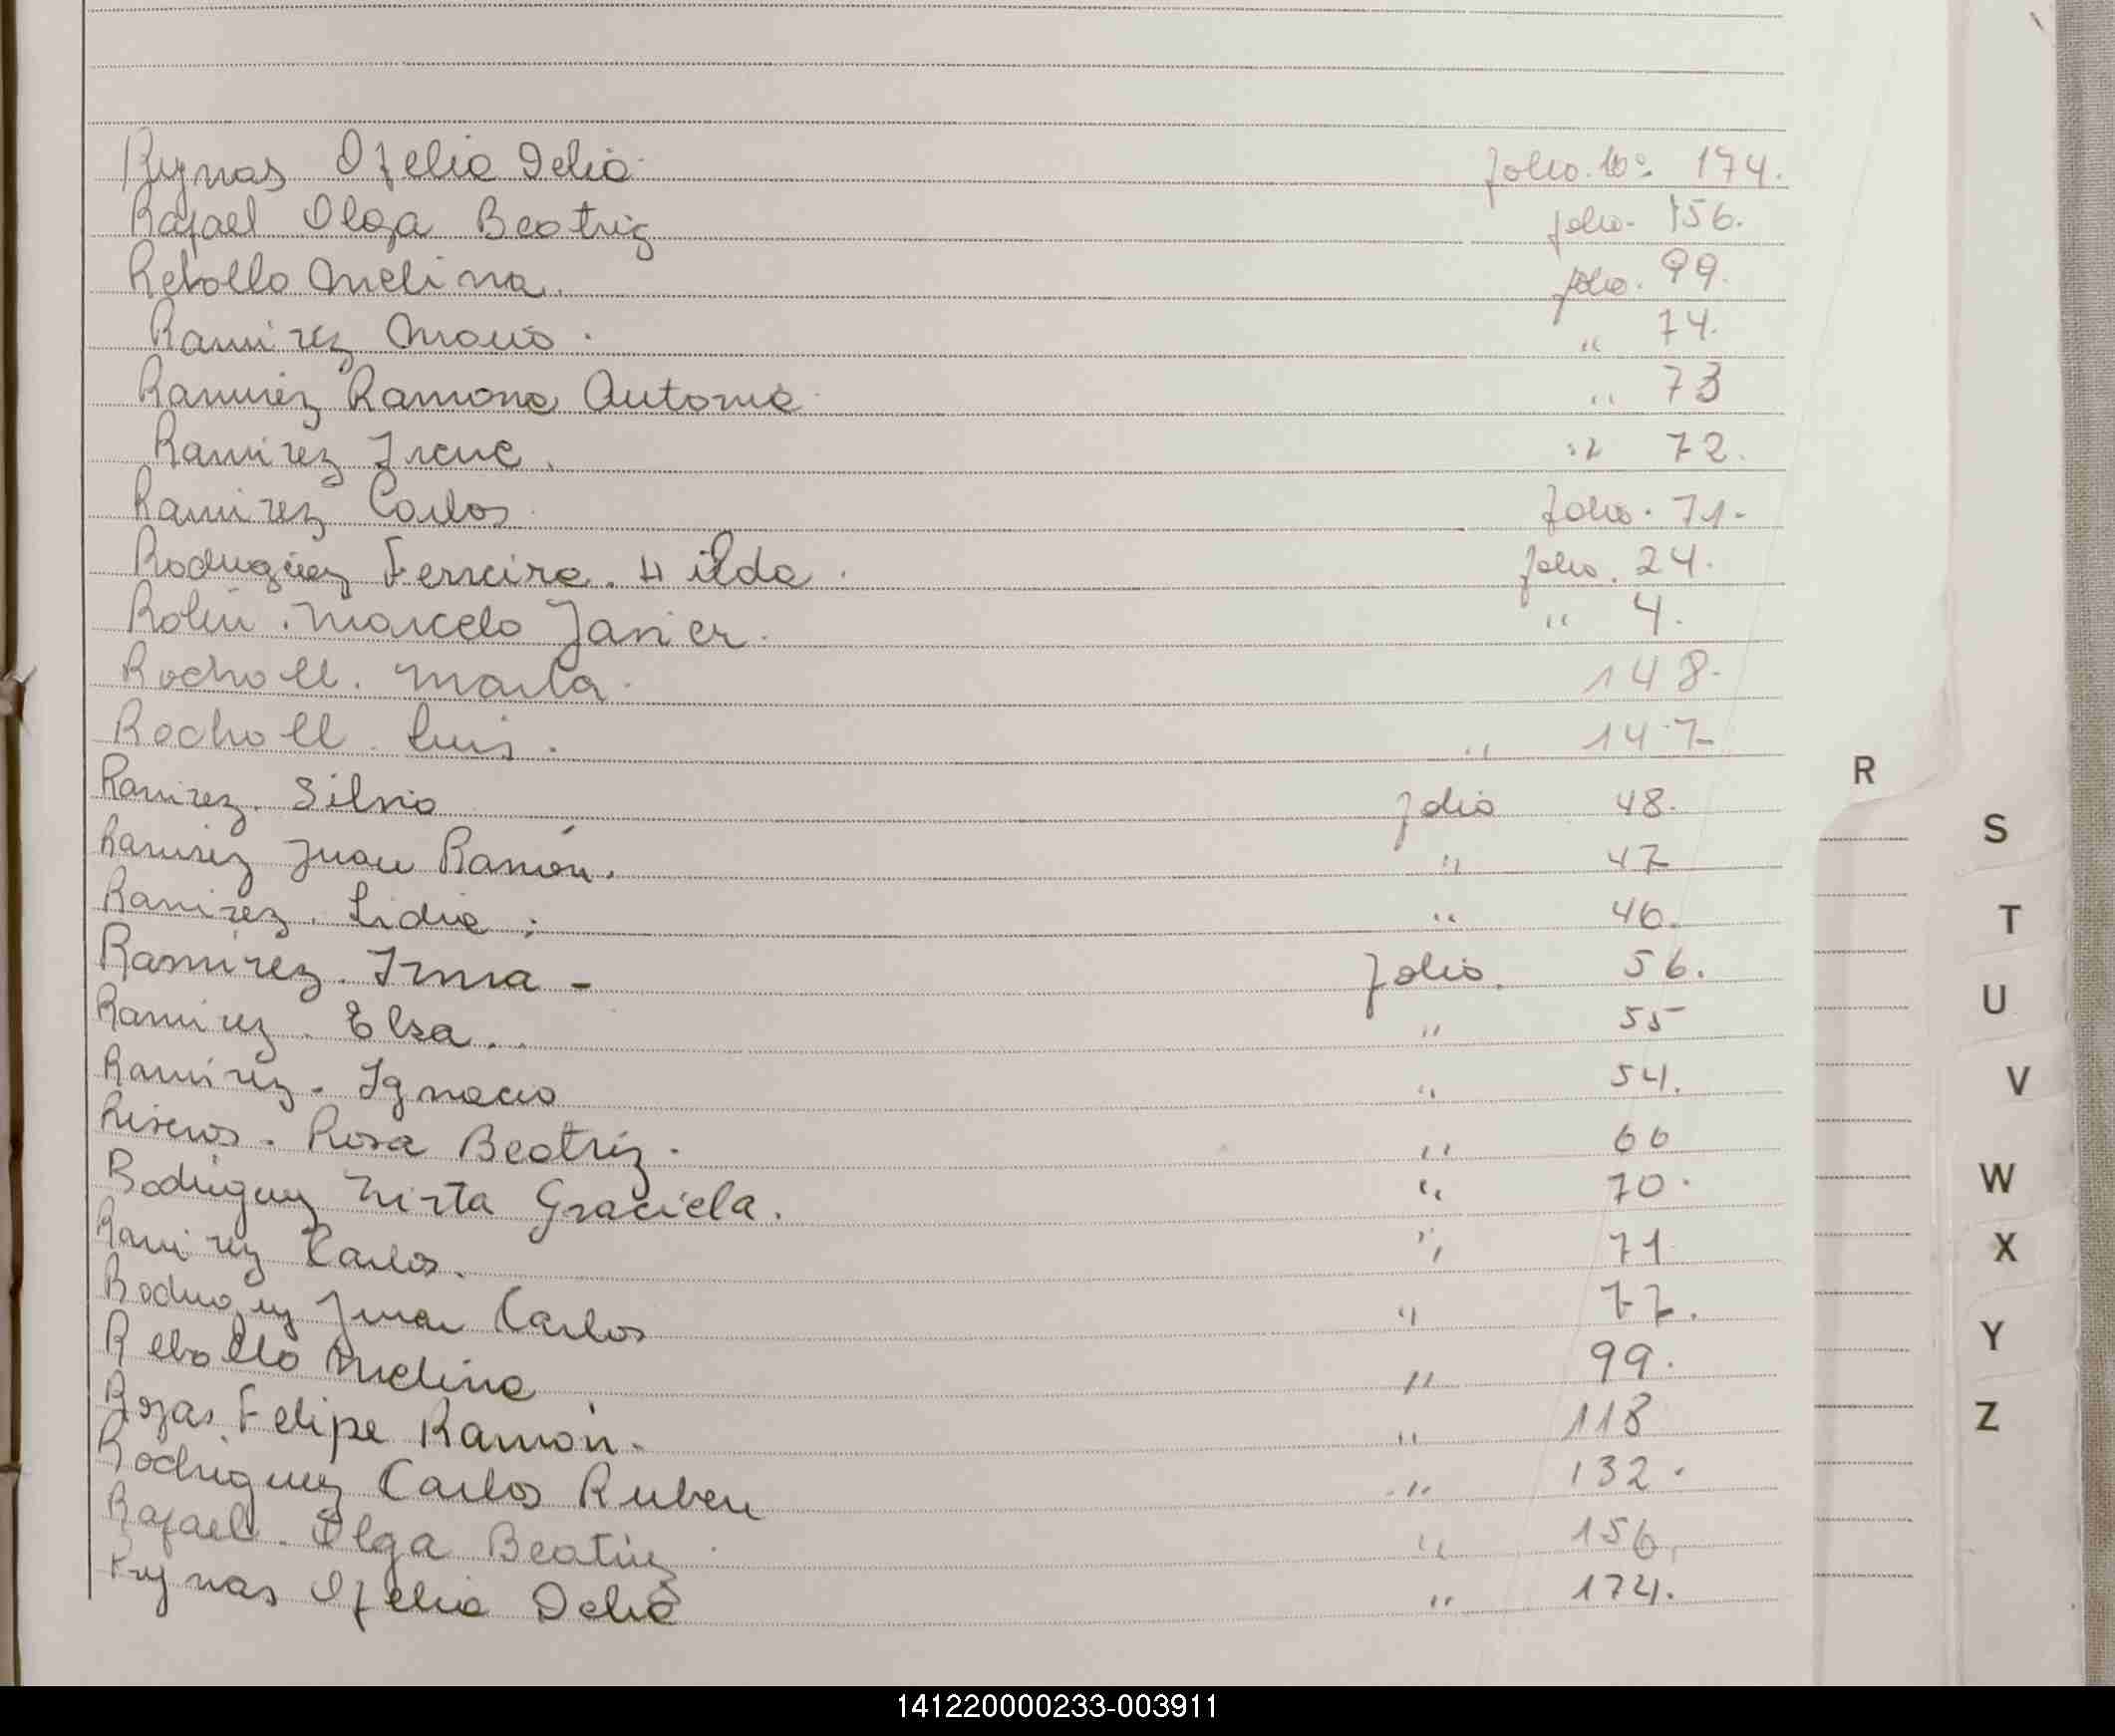 Rynas Ofelia Delia folio No 174.
Rafael Olga Beatriz folio. 156.
Rebollo Melina. folio. 99.
Ramirez Mario. " 74.
Ramirez Ramona Antonia " 73
Ramirez Irene. " 72.
Ramirez Carlos folio. 71.
Rodriguez Ferreira. Hilda. folio. 24.
Rolin. Marcelo Javier. " 4.
Rocholl. Marta. 148.
Rocholl Luis. " 147
Ramirez. Silvio folio 48.
Ramirez Juan Ramón. " 47
Ramirez. Lidia. " 46.
Ramirez. Irma - folio. 56.
Ramirez. Elsa. " 55
Ramirez. Ignacio " 54.
Rosa Beatriz. " 66
Rodriguez Mirta Graciela. " 70.
Ramirez Carlos. " 71
Rodriguez Juan Carlos " 77.
Rebollo Melina " 99.
Rojas. Felipe Ramón. " 118
Rodriguez Carlos Ruben " 132.
Rafael. Olga Beatriz " 156.
Rynas Ofelia Delia " 174.
R
S
T
U
V
W
X
Y
Z
141220000233-003911